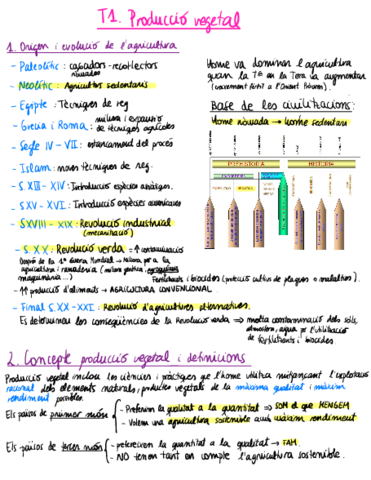 T1. Producció vegetal
1. Origen i evolució de l'agricultura
- Paleolític: caçadors-recol·lectors
nòmades
- Neolític: Agricultors sedentaris
- Egipte: Tècniques de reg
- Grècia i Roma: millora i expansió
de tècniques agrícoles
- Segle IV - VII: estancament del procés
- Islam: noves tècniques de reg.
- S. XIII - XIV: Introducció espècies
- S. XV - XVI: Introducció espècies americanes
- S XVIII - XIX: Revolució industrial
(mecanització)
- S. XX: Revolució verda =
Després de la Guerra Mundial → Millora per a la
agricultura i ramaderia (millora genètica,
maquinària...)
Fertilitzants i biocides (protecció cultius de plagues o malalties).
- producció d'aliments → AGRICULTURA CONVENCIONAL
- Final S. XX - XXI: Revolució d'agricultures alternatives.
Es determinen les conseqüències de la Revolució verda ⇒ media contaminació dels sòls,
atmosfera, aigua per l'utilització
de fertilitzants i biocides
Home va dominar l'agricultura
quan la Tª en la Terra va augmentar
(creixement fèrtil a l'Orient Pròxim).
Base de les civilitzacions:
Home nòmada → home sedentari
PREHISTÒRIA
HISTÒRIA
2. Concepte producció vegetal i definicions
Producció vegetal inclou les ciències i pràctiques que l'home utilitza mitjançant l'explotació
racional dels elements naturals, produeix vegetals de la màxima qualitat i màxim
rendiment possible.
Els països de primer món
- Preferim la qualitat a la quantitat ⇒ SOM el que MENGEM
- Volem una agricultura sostenible amb màxim rendiment
Els països de tercer món
- prefereixen la quantitat a la qualitat → FAM.
- NO tenen tant en compte l'agricultura sostenible.